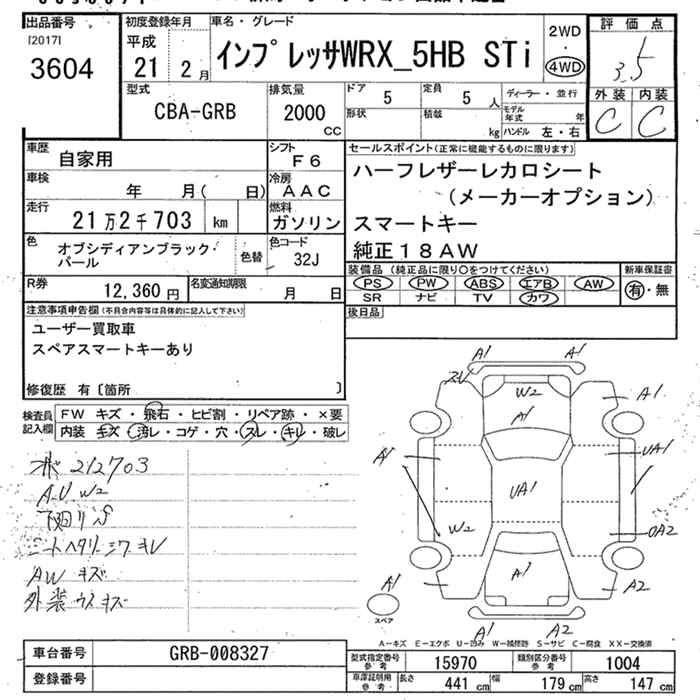 出品番号
[2017]
3604
初度登録年月
平成
21 2月
車名・グレード
インプレッサWRX_5HB STi
2WD
・
4WD
評価点
3.5
外装 内装
C C
型式
CBA-GRB
排気量
2000
CC
ドア
5
定員
5 人
ディーラー・並行
形状
積載
kg
モデル年式 年
ハンドル 左・右
車歴
自家用
シフト
F6
車検
年 月( 日)
冷房
AAC
走行
21万2千703 km
燃料
ガソリン
色
オブシディアンブラック・パール
色替
色コード
32J
R券
12,360円
名変通知期限
月 日
セールスポイント(正常に機能するものに限ります)
ハーフレザーレカロシート
(メーカーオプション)
スマートキー
純正18AW
装備品(純正品に限り〇をつけてください)
PS PW ABS エアB AW
SR ナビ TV カワ
新車保証書
有・無
後日品
注意事項申告欄(不具合内容等は具体的に記入して下さい)
ユーザー買取車
スペアスマートキーあり
修復歴 有〔箇所 〕
検査員記入欄
FW キズ・飛石・ヒビ割・リペア跡・×要
内装 キズ・汚レ・コゲ・穴・スレ・キレ・破レ
212703
A.U.W2
下回りS
シートヘタリ シワ キレ
AW キズ
外装 ウスキズ
A1
A1
スリ
W2
A1
A1
A1
UA1
UA1
W2
UA2
A1
A1
A2
スペア
A1
A2
A-キズ E-エクボ U-凹み W-補修跡 S-サビ C-腐食 XX-交換済
車台番号
GRB-008327
登録番号
型式指定番号
参考
15970
類別区分番号
参考
1004
車庫証明用
参考
長さ
441 cm
幅
179 cm
高さ
147 cm